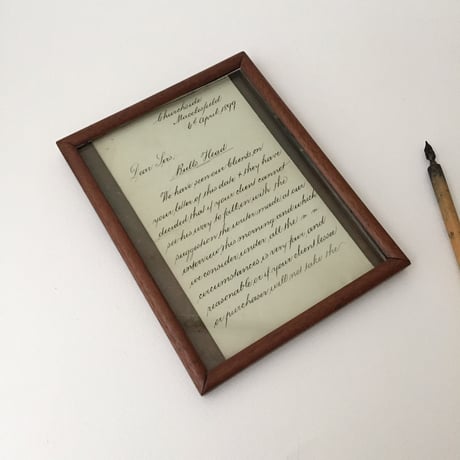 Churchside
Macclesfield
6th April 1899
Dear Sirs,
Bulls Head
We have seen our Clients on
your letter of this date & they have
decided that if your client cannot
see his way to fall in with the
suggestion the writer made at our
interview this morning and which
we consider under all the
circumstances is very fair and
reasonable or if your client lessee
or purchaser will not take the